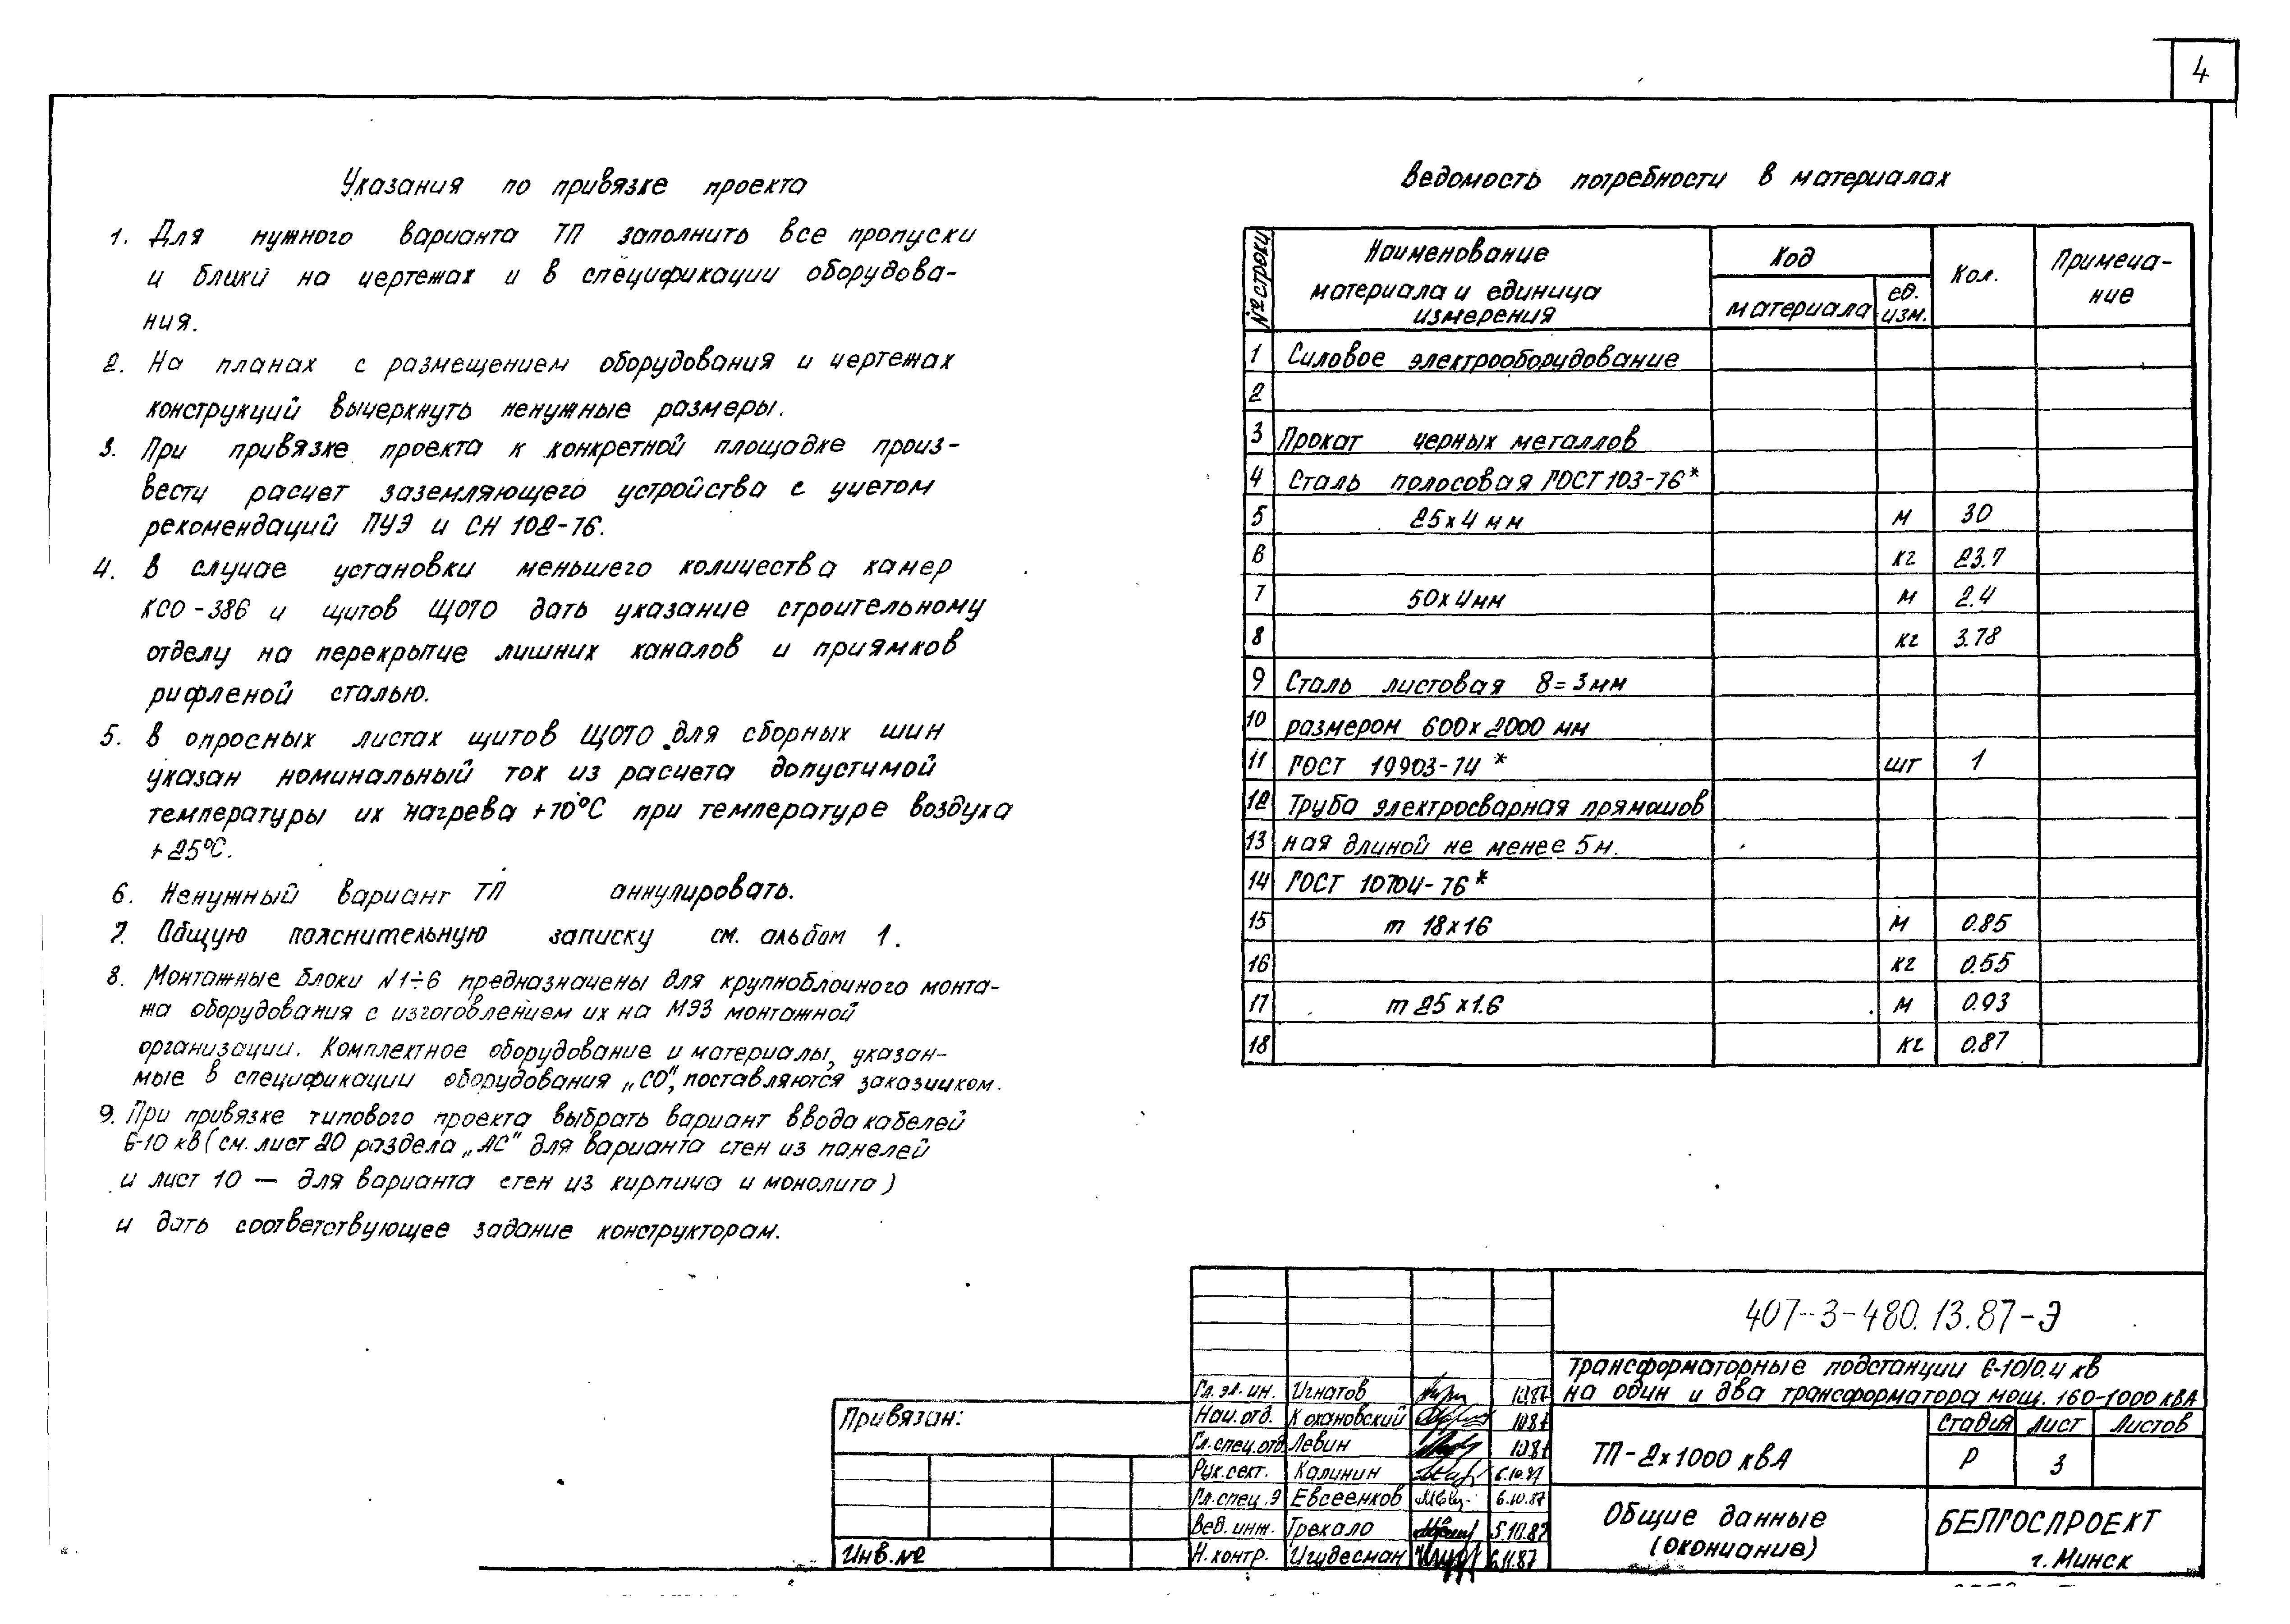 4
Указания по привязке проекта
1. Для нужного варианта ТП заполнить все пропуски
и блики на чертежах и в спецификации оборудова-
ния.
2. На планах с размещением оборудования и чертежах
конструкций вычеркнуть ненужные размеры.
3. При привязке проекта к конкретной площадке произ-
вести расчет заземляющего устройства с учетом
рекомендаций ПУЭ и СН 102-76.
4. В случае установки меньшего количества камер
КСО-386 и щитов ЩО70 дать указание строительному
отделу на перекрытие лишних каналов и приямков
рифленой сталью.
5. В опросных листах щитов ЩО70 для сборных шин
указан номинальный ток из расчета допустимой
температуры их нагрева +70°С при температуре воздуха
+25°С.
6. Ненужный вариант ТП аннулировать.
7. Общую пояснительную записку см. альбом 1.
8. Монтажные блоки №1÷6 предназначены для крупноблочного монта-
жа оборудования с изготовлением их на МЭЗ монтажной
организации. Комплектное оборудование и материалы, указан-
мые в спецификации оборудования „СО", поставляются заказчиком.
9. При привязке типового проекта выбрать вариант ввода кабелей
6-10 кВ (см. лист 20 раздела „АС" для варианта стен из панелей
и лист 10 — для варианта стен из кирпича и монолита)
и дать соответствующее задание конструкторам.
Ведомость потребности в материалах
№ строки Наименование материала и единица измерения Код материала ед. изм. Кол. Примеча-ние
1 Силовое электрооборудование
2
3 Прокат черных металлов
4 Сталь полосовая ГОСТ 103-76*
5 25х4 мм м 30
6 кг 23.7
7 50х4мм м 2.4
8 кг 3.78
9 Сталь листовая δ=3мм
10 размером 600х2000 мм
11 ГОСТ 19903-74* шт 1
12 Труба электросварная прямошов
13 ная длиной не менее 5м.
14 ГОСТ 10704-76*
15 т 18х16 м 0.85
16 кг 0.55
17 т 25х1.6 м 0.93
18 кг 0.87
407-3-480.13.87-Э
Трансформаторные подстанции 6-10/0.4 кВ
на один и два трансформатора мощ. 160-1000 кВА
Гл. эл. ин. Игнатов 10.87
Нач. отд. Кохановский 10.87
Гл. спец. отд. Левин 10.87
Рук. сект. Калинин 6.10.87
Гл. спец. Э Евсеенков 6.10.87
Вед. инж. Трекало 5.10.87
Н. контр. Игудесман 6.11.87
ТП-2х1000 кВА
Стадия Лист Листов
Р 3
Общие данные
(окончание)
БЕЛГОСПРОЕКТ
г. Минск
Привязан:
Инв. №